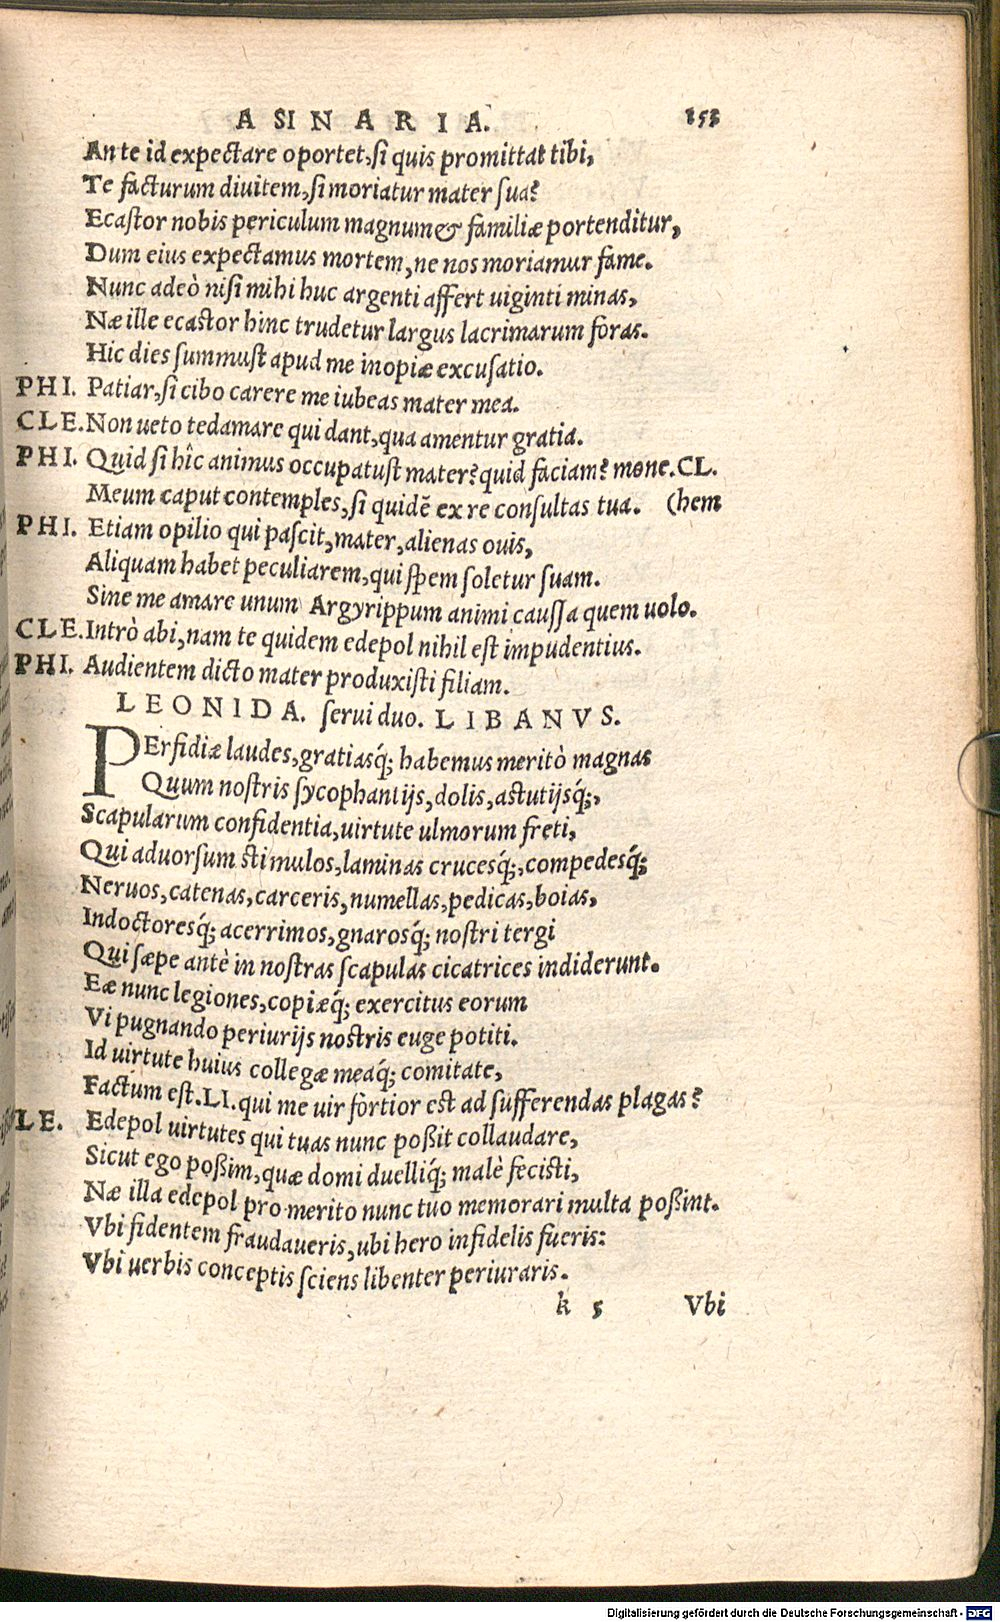 ASINARIA. 153
An te id expectare oportet, si quis promittat tibi,
Te facturum divitem, si moriatur mater sua?
Ecastor nobis periculum magnum& familiæ portenditur,
Dum eius expectamus mortem, ne nos moriamur fame.
Nunc adeò nisi mihi huc argenti affert uiginti minas,
Næ ille ecastor hinc trudetur largus lacrimarum foras.
Hic dies summust apud me inopiæ excusatio.
PHI. Patiar, si cibo carere me iubeas mater mea.
CLE. Non ueto te damare qui dant, qua amentur gratia.
PHI. Quid si hîc animus occupatust mater? quid faciam? mone. CL.
Meum caput contemples, si quidē ex re consultas tua. (hem
PHI. Etiam opilio qui pascit, mater, alienas ouis,
Aliquam habet peculiarem, qui spem soletur suam.
Sine me amare unum Argyrippum animi caussa quem uolo.
CLE. Intrò abi, nam te quidem edepol nihil est impudentius.
PHI. Audientem dicto mater produxisti filiam.
LEONIDA. serui duo. LIBANVS.
PErfidiæ laudes, gratiasq́; habemus meritò magnas
Quum nostris sycophantijs, dolis, astutijsq́;,
Scapularum confidentia, uirtute ulmorum freti,
Qui aduorsum stimulos, laminas crucesq́;, compedesq́;
Neruos, catenas, carceris, numellas, pedicas, boias,
Indoctoresq́; acerrimos, gnarosq́; nostri tergi
Qui sæpe antè in nostras scapulas cicatrices indiderunt.
Eæ nunc legiones, copiæq́; exercitus eorum
Vi pugnando periurijs nostris euge potiti.
Id uirtute huius collegæ meaq́; comitate,
Factum est. LI. qui me uir fòrtior est ad sufferendas plagas?
LE. Edepol uirtutes qui tuas nunc poßit collaudare,
Sicut ego poßim, quæ domi duelliq́; malè fecisti,
Næ illa edepol pro merito nunc tuo memorari multa poßint.
Vbi fidentem fraudaueris, ubi hero infidelis fueris:
Vbi uerbis conceptis sciens libenter periuraris.
k 5 Vbi
Digitalisierung gefördert durch die Deutsche Forschungsgemeinschaft - DFG